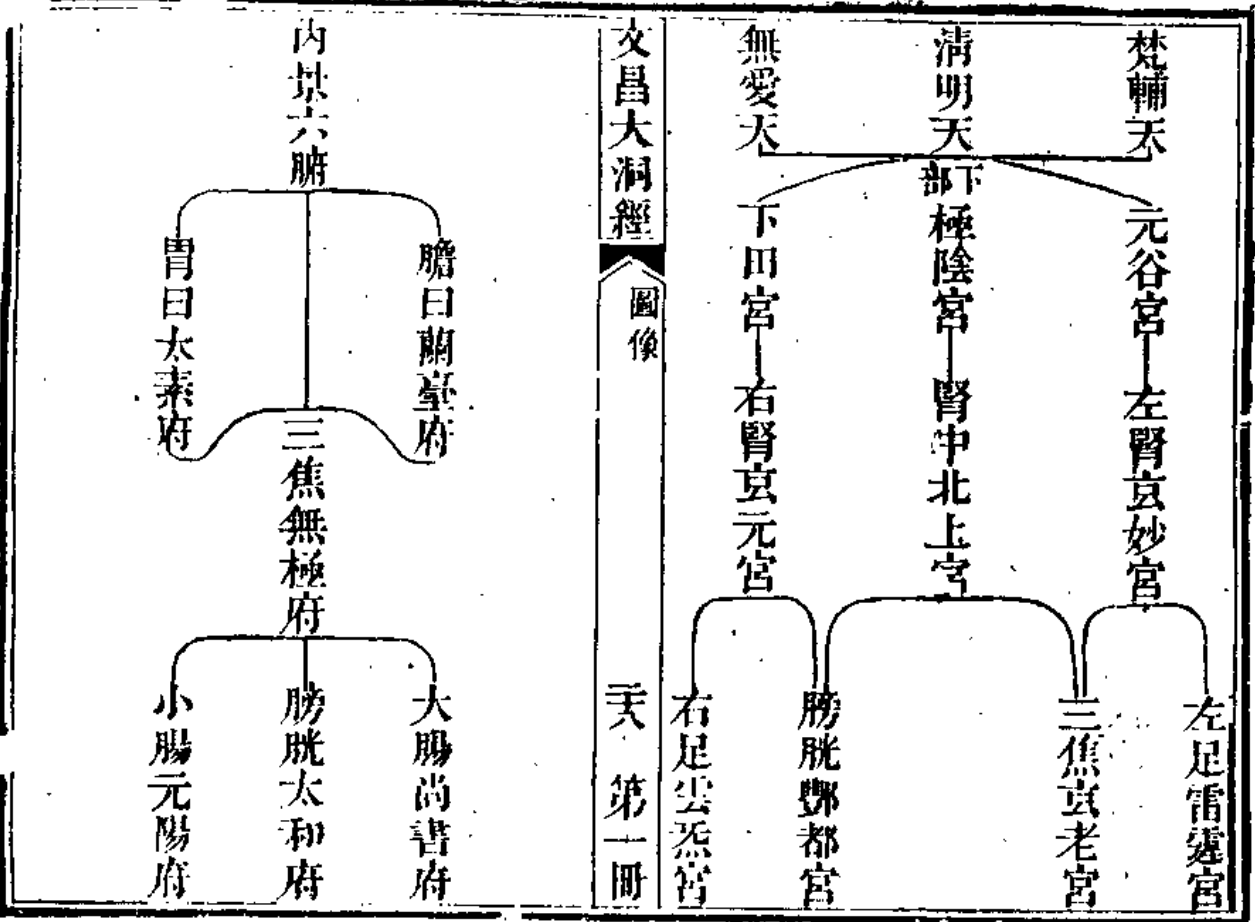 梵輔天
清明天
無愛天
下部
元谷宮
極陰宮
下田宮
左腎玄妙宮
腎中北上宮
右腎玄元宮
左足雷霆宮
三焦玄老宮
膀胱酆都宮
右足雲炁宮
文昌大洞經
圖像
第一冊
內景六腑
膽曰蘭臺府
胃曰太素府
三焦無極府
大腸尚書府
膀胱太和府
小腸元陽府